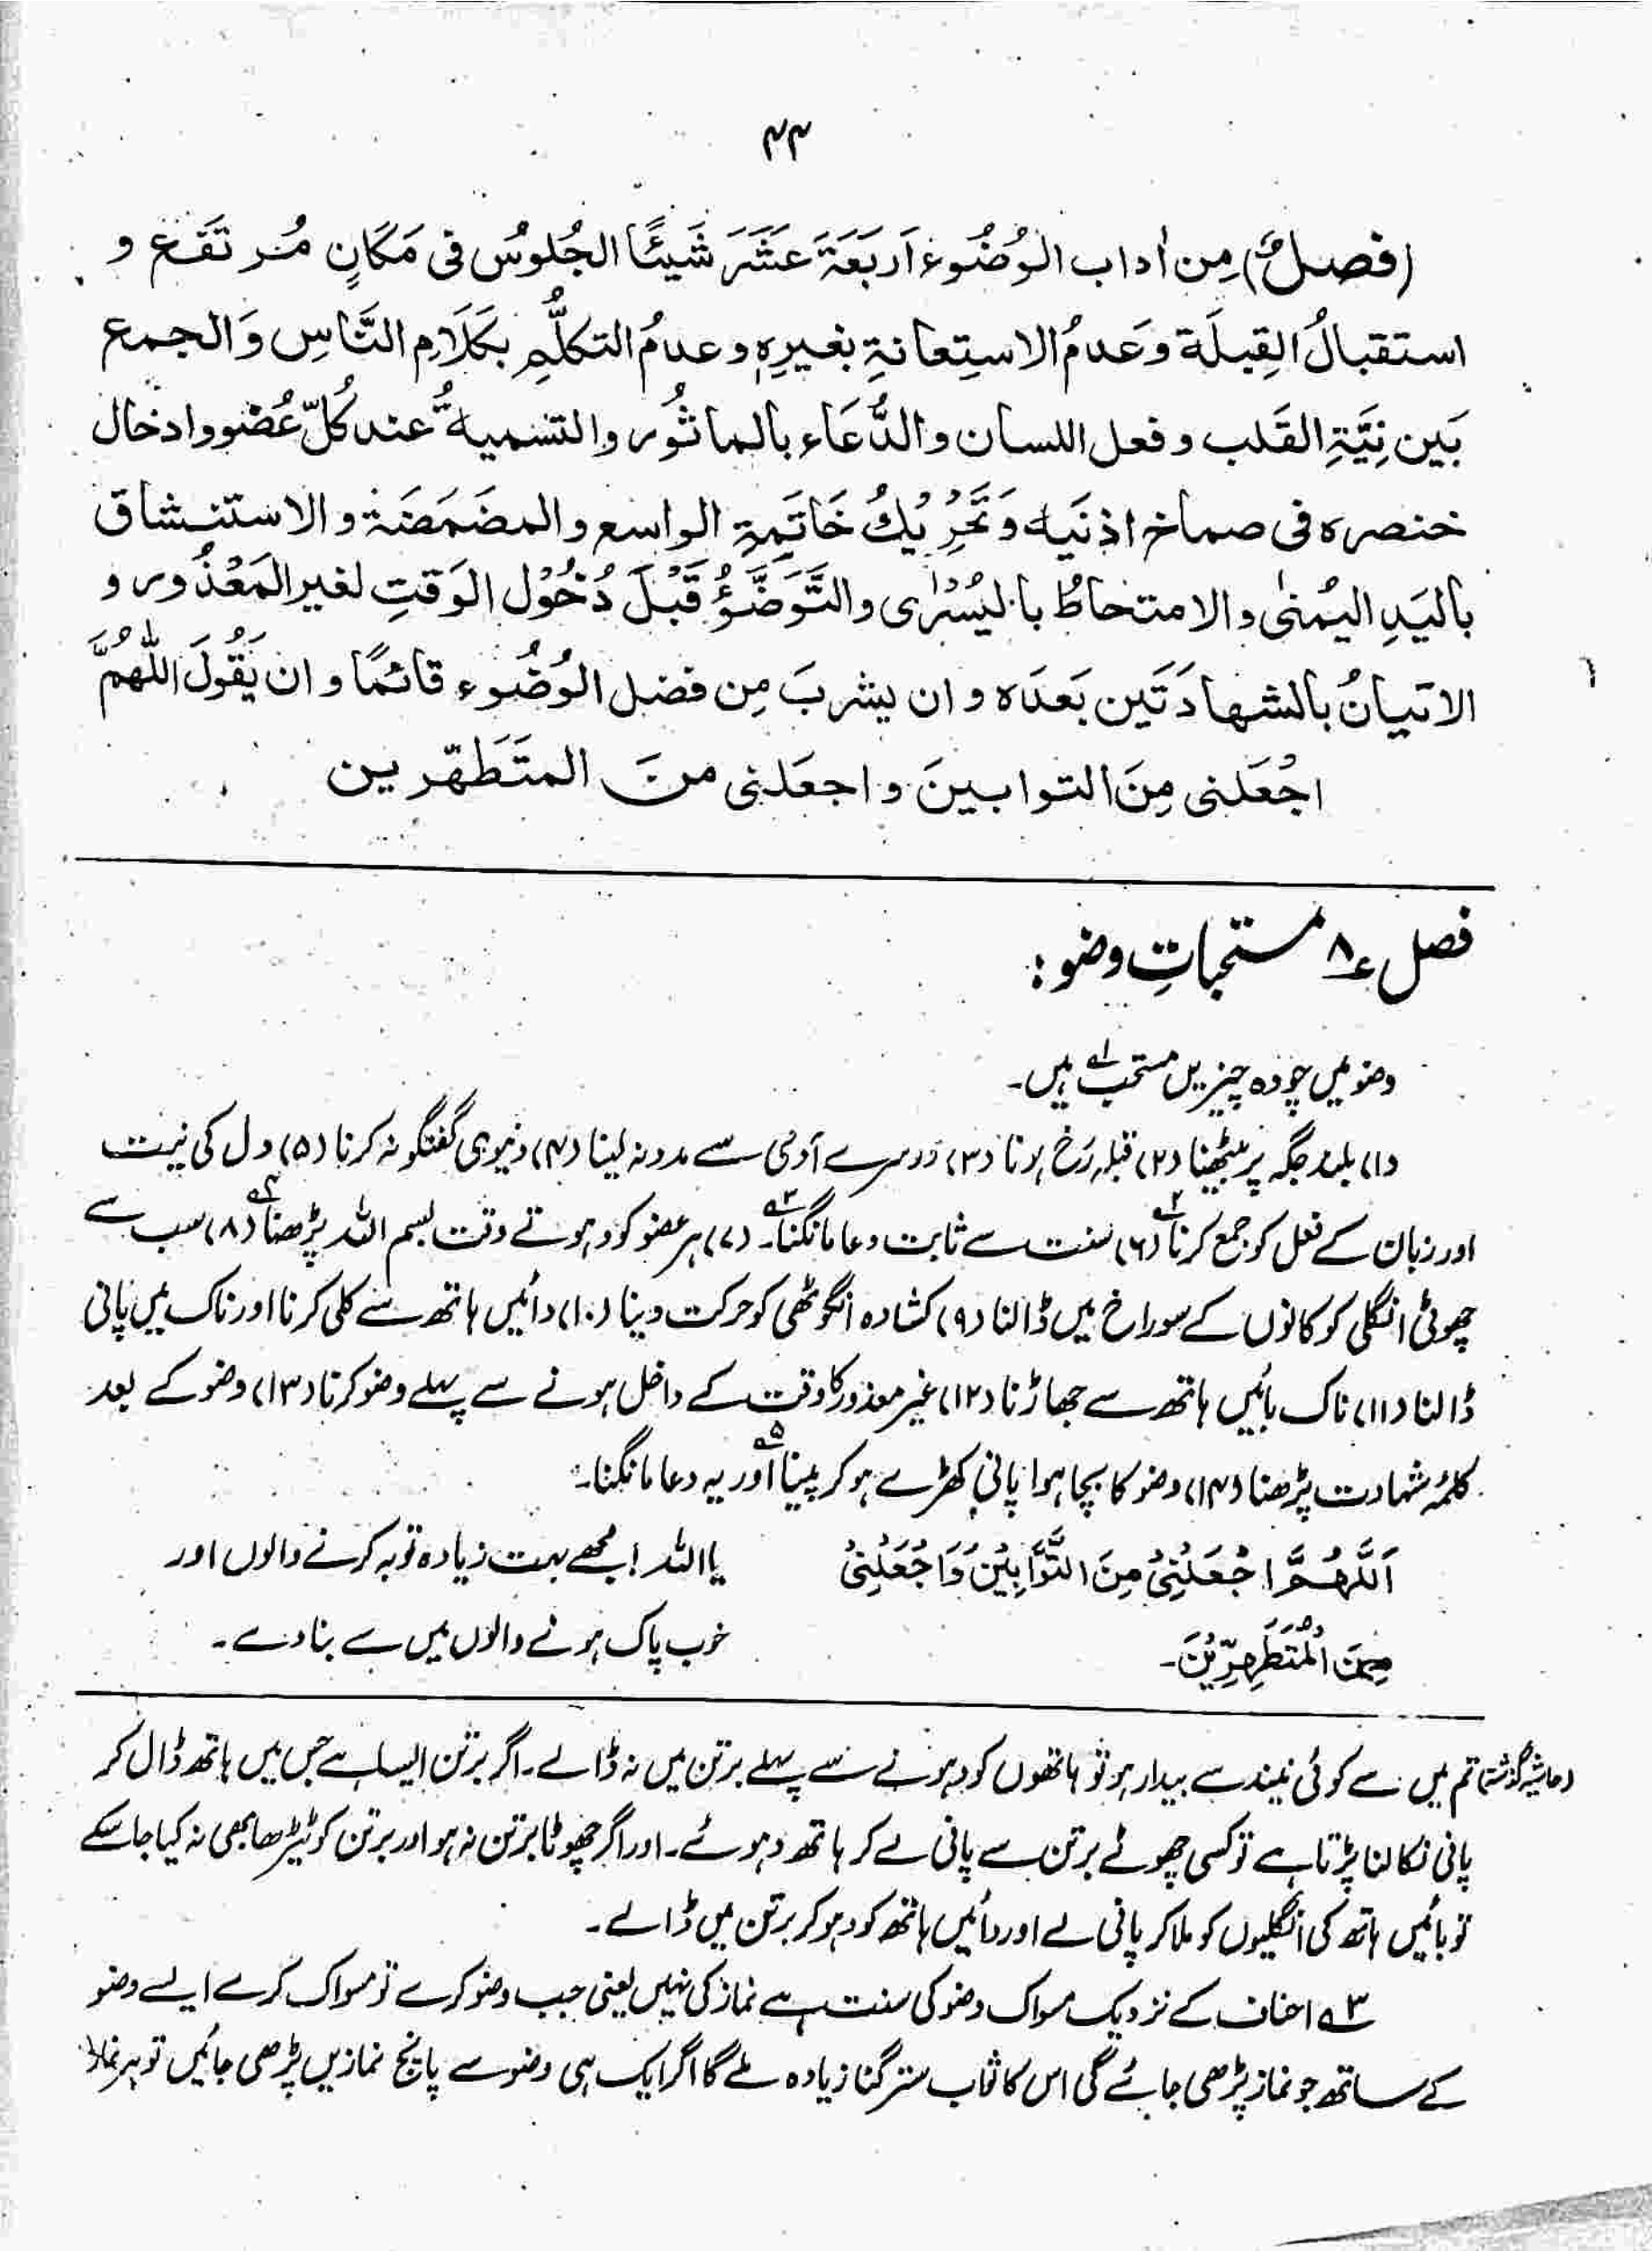 ۴۴
(فصلٌ) مِن اٰداب الوُضُوءِ اَربَعَۃَ عَشَرَ شَیئًا الجُلوسُ فی مَکَانٍ مُرتَفَعٍ و
استقبالُ القِبلَة وعَدمُ الاستِعانۃِ بغیرِہٖ وعدمُ التکلُّمِ بکَلَامِ النَّاسِ وَالجمع
بَین نِیَّۃِ القَلب وفعل اللسان والدُّعَاء بالماثُور والتسمیۃُ عند کُلّ عُضو وادخال
خنصرہ فی صماخ اذنَیہ وَتَحْرِیْکُ خَاتَمِہِ الواسع والمضمَضَۃ والاستنشاق
بالیَدِ الیُمنٰی والامتخاطُ بالیُسْرٰی والتَّوَضَّؤُ قَبْلَ دُخُوْل الوَقتِ لغیر المَعْذُور و
الاتیانُ بالشھادَتَین بَعدَہ وان یشربَ مِن فضل الوُضُوء قائمًا وان یَقُولَ اللّٰھُمَّ
اجْعَلنی مِنَ التوابینَ واجعَلنی منَ المتَطَھّرین
فصل ۸ مستحباتِ وضو:
وضو میں چودہ چیزیں مستحب۱ ہیں۔
(۱) بلند جگہ پر بیٹھنا (۲) قبلہ رُخ ہونا (۳) دوسرے آدمی سے مدد نہ لینا (۴) دنیوی گفتگو نہ کرنا (۵) دل کی نیت
اور زبان کے فعل کو جمع کرنا۲ (۶) سنت سے ثابت دعا مانگنا۳۔ (۷) ہر عضو کو دھوتے وقت بسم اللہ پڑھنا۴ (۸) سب سے
چھوٹی انگلی کو کانوں کے سوراخ میں ڈالنا (۹) کشادہ انگوٹھی کو حرکت دینا (۱۰) دائیں ہاتھ سے کلی کرنا اور ناک میں پانی
ڈالنا (۱۱) ناک بائیں ہاتھ سے جھاڑنا (۱۲) غیر معذور کا وقت کے داخل ہونے سے پہلے وضو کرنا (۱۳) وضو کے بعد
کلمۂ شہادت پڑھنا (۱۴) وضو کا بچا ہوا پانی کھڑے ہو کر پینا۵ اور یہ دعا مانگنا۔
اَللّٰھُمَّ اجْعَلْنِیْ مِنَ التَّوَّابِیْنَ وَاجْعَلْنِیْ
مِنَ الْمُتَطَھِّرِیْنَ۔
یا اللہ! مجھے بہت زیادہ توبہ کرنے والوں اور
خوب پاک ہونے والوں میں سے بنا دے۔
(حاشیہ گزشتہ) تم میں سے کوئی نیند سے بیدار ہو تو ہاتھوں کو دھونے سے پہلے برتن میں نہ ڈالے۔ اگر برتن ایسا ہے جس میں ہاتھ ڈال کر
پانی نکالنا پڑتا ہے تو کسی چھوٹے برتن سے پانی لے کر ہاتھ دھوئے۔ اور اگر چھوٹا برتن نہ ہو اور برتن کو ٹیڑھا بھی نہ کیا جا سکے
تو بائیں ہاتھ کی انگلیوں کو ملا کر پانی لے اور دائیں ہاتھ کو دھو کر برتن میں ڈالے۔
۳ احناف کے نزدیک مسواک وضو کی سنت ہے نماز کی نہیں یعنی جب وضو کرے تو مسواک کرے ایسے وضو
کے ساتھ جو نماز پڑھی جائے گی اس کا ثواب ستر گنا زیادہ ملے گا اگر ایک ہی وضو سے پانچ نمازیں پڑھی جائیں تو ہر نماز کا